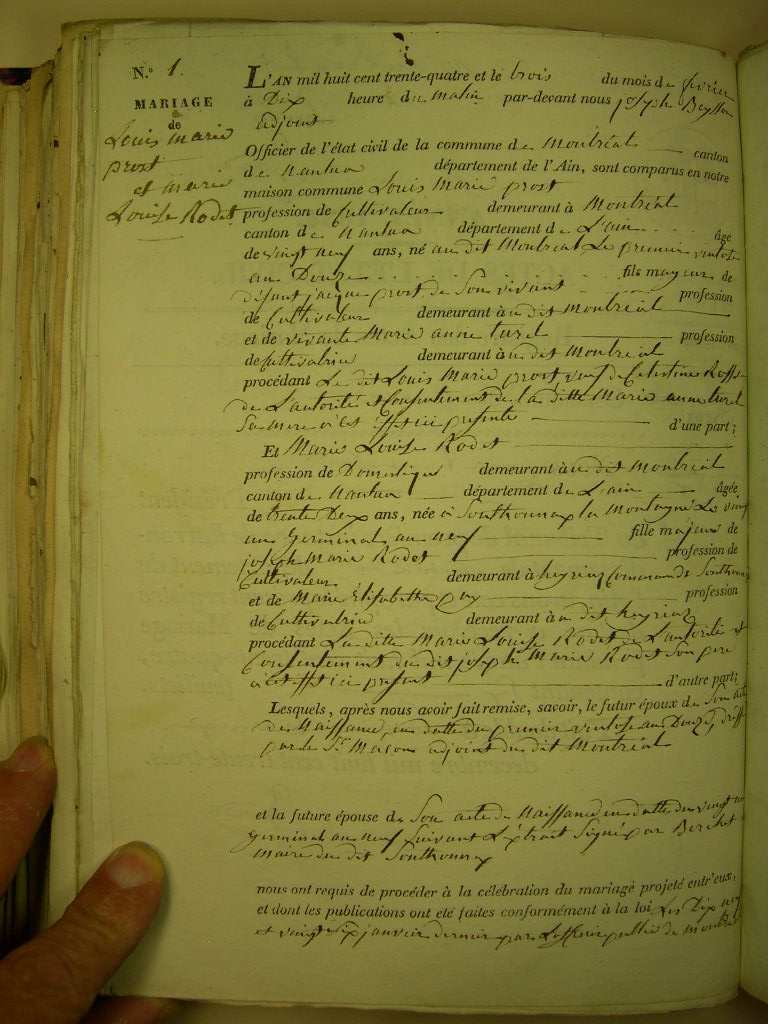 N.° 1.
MARIAGE
de
Louis marie
prost
et marie
Louise Rodet
L'AN mil huit cent trente-quatre et le trois du mois de fevrier
à Dix heure du matin par-devant nous joseph Beysson
adjoint
Officier de l'état civil de la commune de Montréal canton
de Nantua département de l'Ain, sont comparus en notre
maison commune Louis Marie prost
profession de Cultivateur demeurant à Montréal
canton de Nantua département de L'ain âgé
de vingt neuf ans, né au dit Montréal Le premier ventose
an Douze fils majeur de
défunt jacque prost de Son vivant profession
de Cultivateur demeurant à u dit Montréal
et de vivante Marie anne turel profession
de Cultivatrice demeurant à u dit Montréal
procédant Le dit Louis Marie prost veuf de Celestine
de L'autorité et Consentement de la ditte Marie anne turel
Sa mere ici presente d'une part;
Et Marie Louise Rodet
profession de Domestique demeurant à u dit Montréal
canton de Nantua département de L'ain âgée
de trente Deux ans, née à Sonthonnax la Montagne Le vingt
un Germinal an neuf fille majeure de
joseph Marie Rodet profession de
Cultivateur demeurant à heyriaz Commune de Sonthonnax
et de Marie Elisabethe puy profession
de Cultivatrice demeurant à u dit heyriaz
procédant La ditte Marie Louise Rodet de L'autorité et
Consentement du dit joseph Marie Rodet Son pere
ici present d'autre part;
Lesquels, après nous avoir fait remise, savoir, le futur époux de Son acte
de Naissance, en datte du premier ventose an Douze, dressé
par le Sr. Macon adjoint du dit Montréal
et la future épouse de Son acte de Naissance en datte du vingt un
Germinal an neuf Suivant L'extrait Signé par Berchet
Maire du dit Sonthonnax
nous ont requis de procéder à la célébration du mariage projeté entr'eux,
et dont les publications ont été faites conformément à la loi, Les Dix neuf
et vingt Six janvier dernier par L'officier public de Montréal